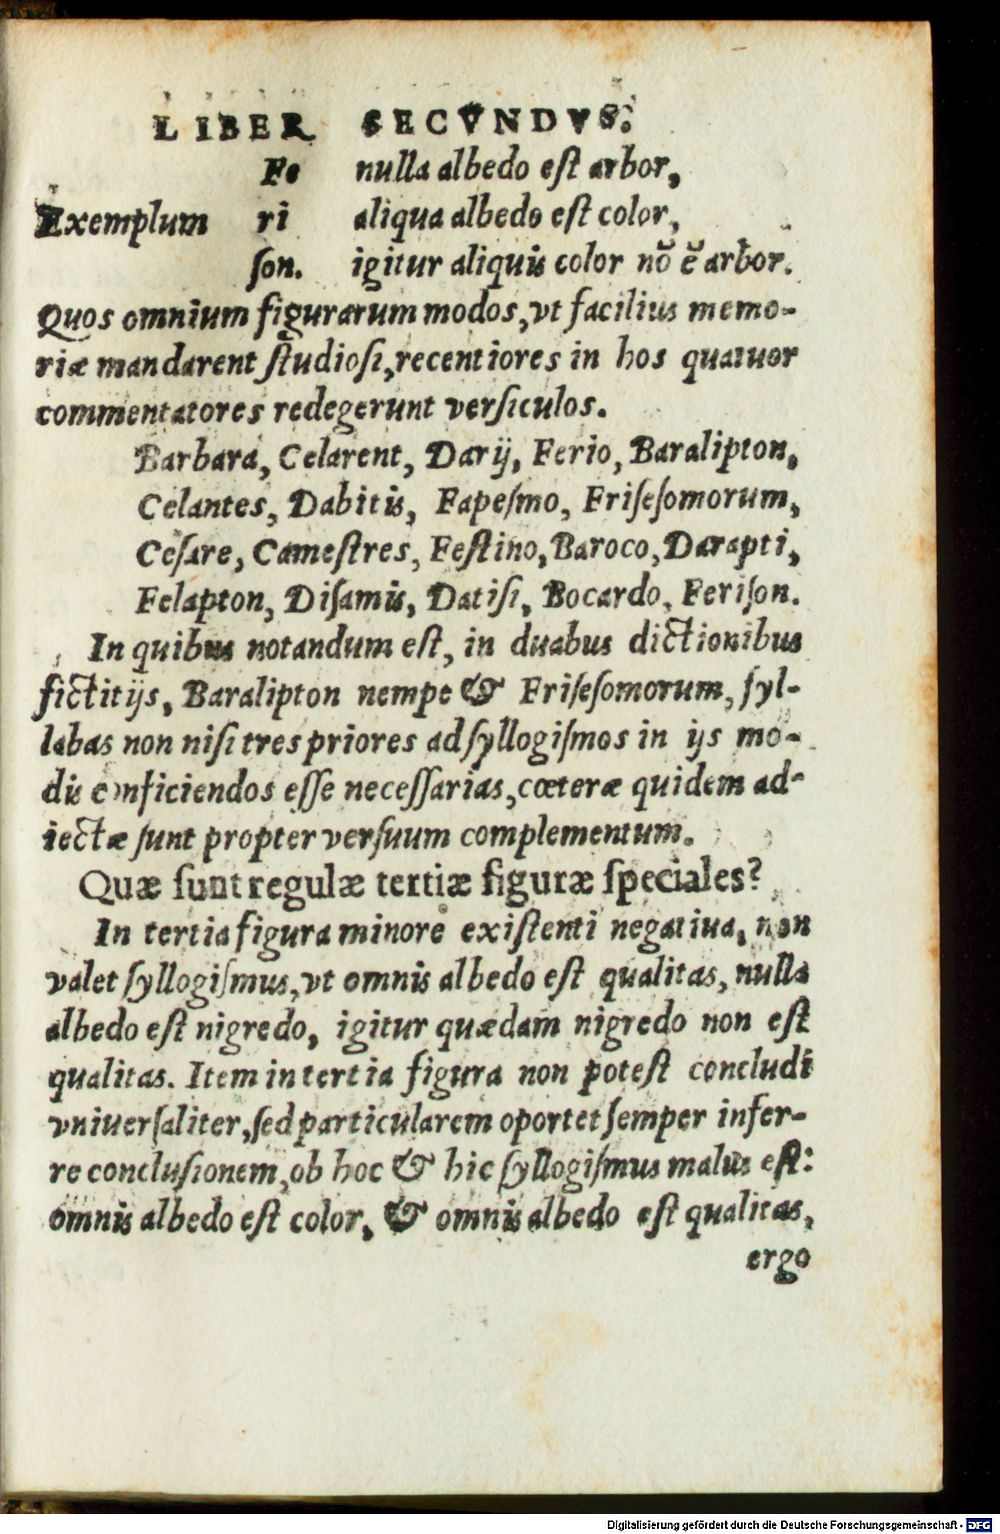 LIBER SECVNDVS.
Fe nulla albedo eſt arbor,
Exemplum ri aliqua albedo eſt color,
ſon. igitur aliquis color nõ ẽ arbor.
Quos omnium figurarum modos, vt facilius memo-
riæ mandarent ſtudioſi, recentiores in hos quatuor
commentatores redegerunt verſiculos.
Barbara, Celarent, Darij, Ferio, Baralipton,
Celantes, Dabitis, Fapeſmo, Friſeſomorum,
Ceſare, Cameſtres, Feſtino, Baroco, Darapti,
Felapton, Diſamis, Datiſi, Bocardo, Feriſon.
In quibus notandum eſt, in duabus dictionibus
fictitijs, Baralipton nempe & Friſeſomorum, ſyl-
labas non niſi tres priores ad ſyllogiſmos in ijs mo-
dis conficiendos eſſe neceſſarias, cœteræ quidem ad-
iectæ ſunt propter verſuum complementum.
Quæ ſunt regulæ tertiæ figuræ ſpeciales?
In tertia figura minore exiſtenti negatiua, non
valet ſyllogiſmus, vt omnis albedo eſt qualitas, nulla
albedo eſt nigredo, igitur quædam nigredo non eſt
qualitas. Item in tertia figura non poteſt concludi
vniuerſaliter, ſed particularem oportet ſemper infer-
re concluſionem, ob hoc & hic ſyllogiſmus malus eſt:
omnis albedo eſt color, & omnis albedo eſt qualitas,
ergo
Digitalisierung gefördert durch die Deutsche Forschungsgemeinschaft - DFG